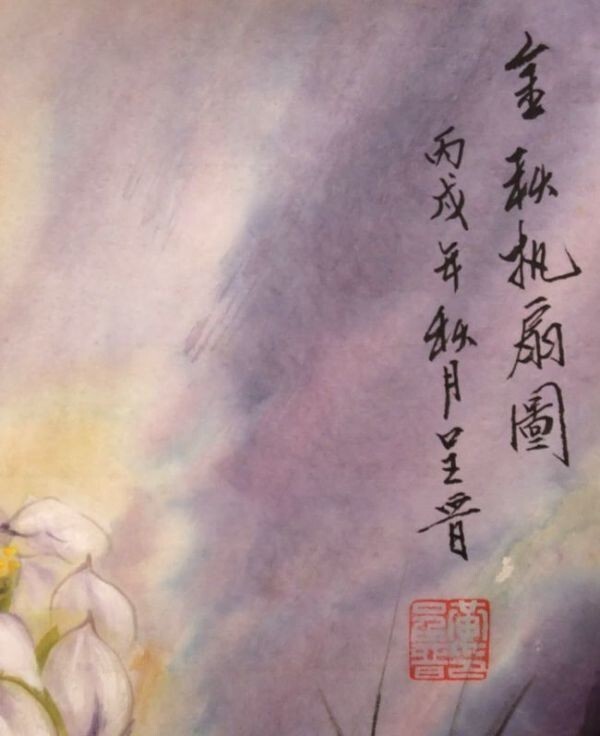 金秋执扇圖
丙戌年秋月呈晋